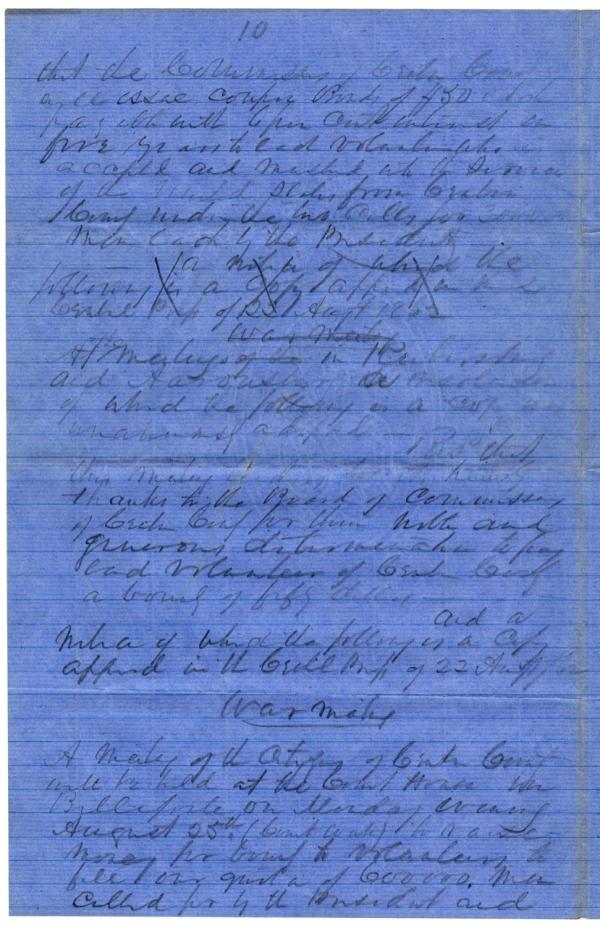 10
that the Commissioners of Centre County
will issue coupon Bonds of $50 each
payable with upon interest in
five years to each Volunteer who is
accepted and mustered into the Service
of the United States from Centre
County under the two Calls for
Men each by the President
a notice of which the
following is a Copy appeared in the
Central Press of 22 Augt 1862
War Meeting
At Meetings of the in
and Aaronsburg a resolution
of which the following is a Copy was
unanimously adopted
Resd that
this Meeting
thanks to the Board of Commissioners
of Centre County for their noble and
generous determination to pay
each Volunteer of Centre County
a bounty of fifty dollars
and a
notice of which the following is a Copy
appeared in the Central Press of 22 Augt
War Meeting
A Meeting of the Citizens of Centre County
will be held at the Court House in
Bellefonte on Monday evening
August 25th (Court week) to raise
money for bounty to Volunteers to
fill our quota of 600000 Men
called for by the President and